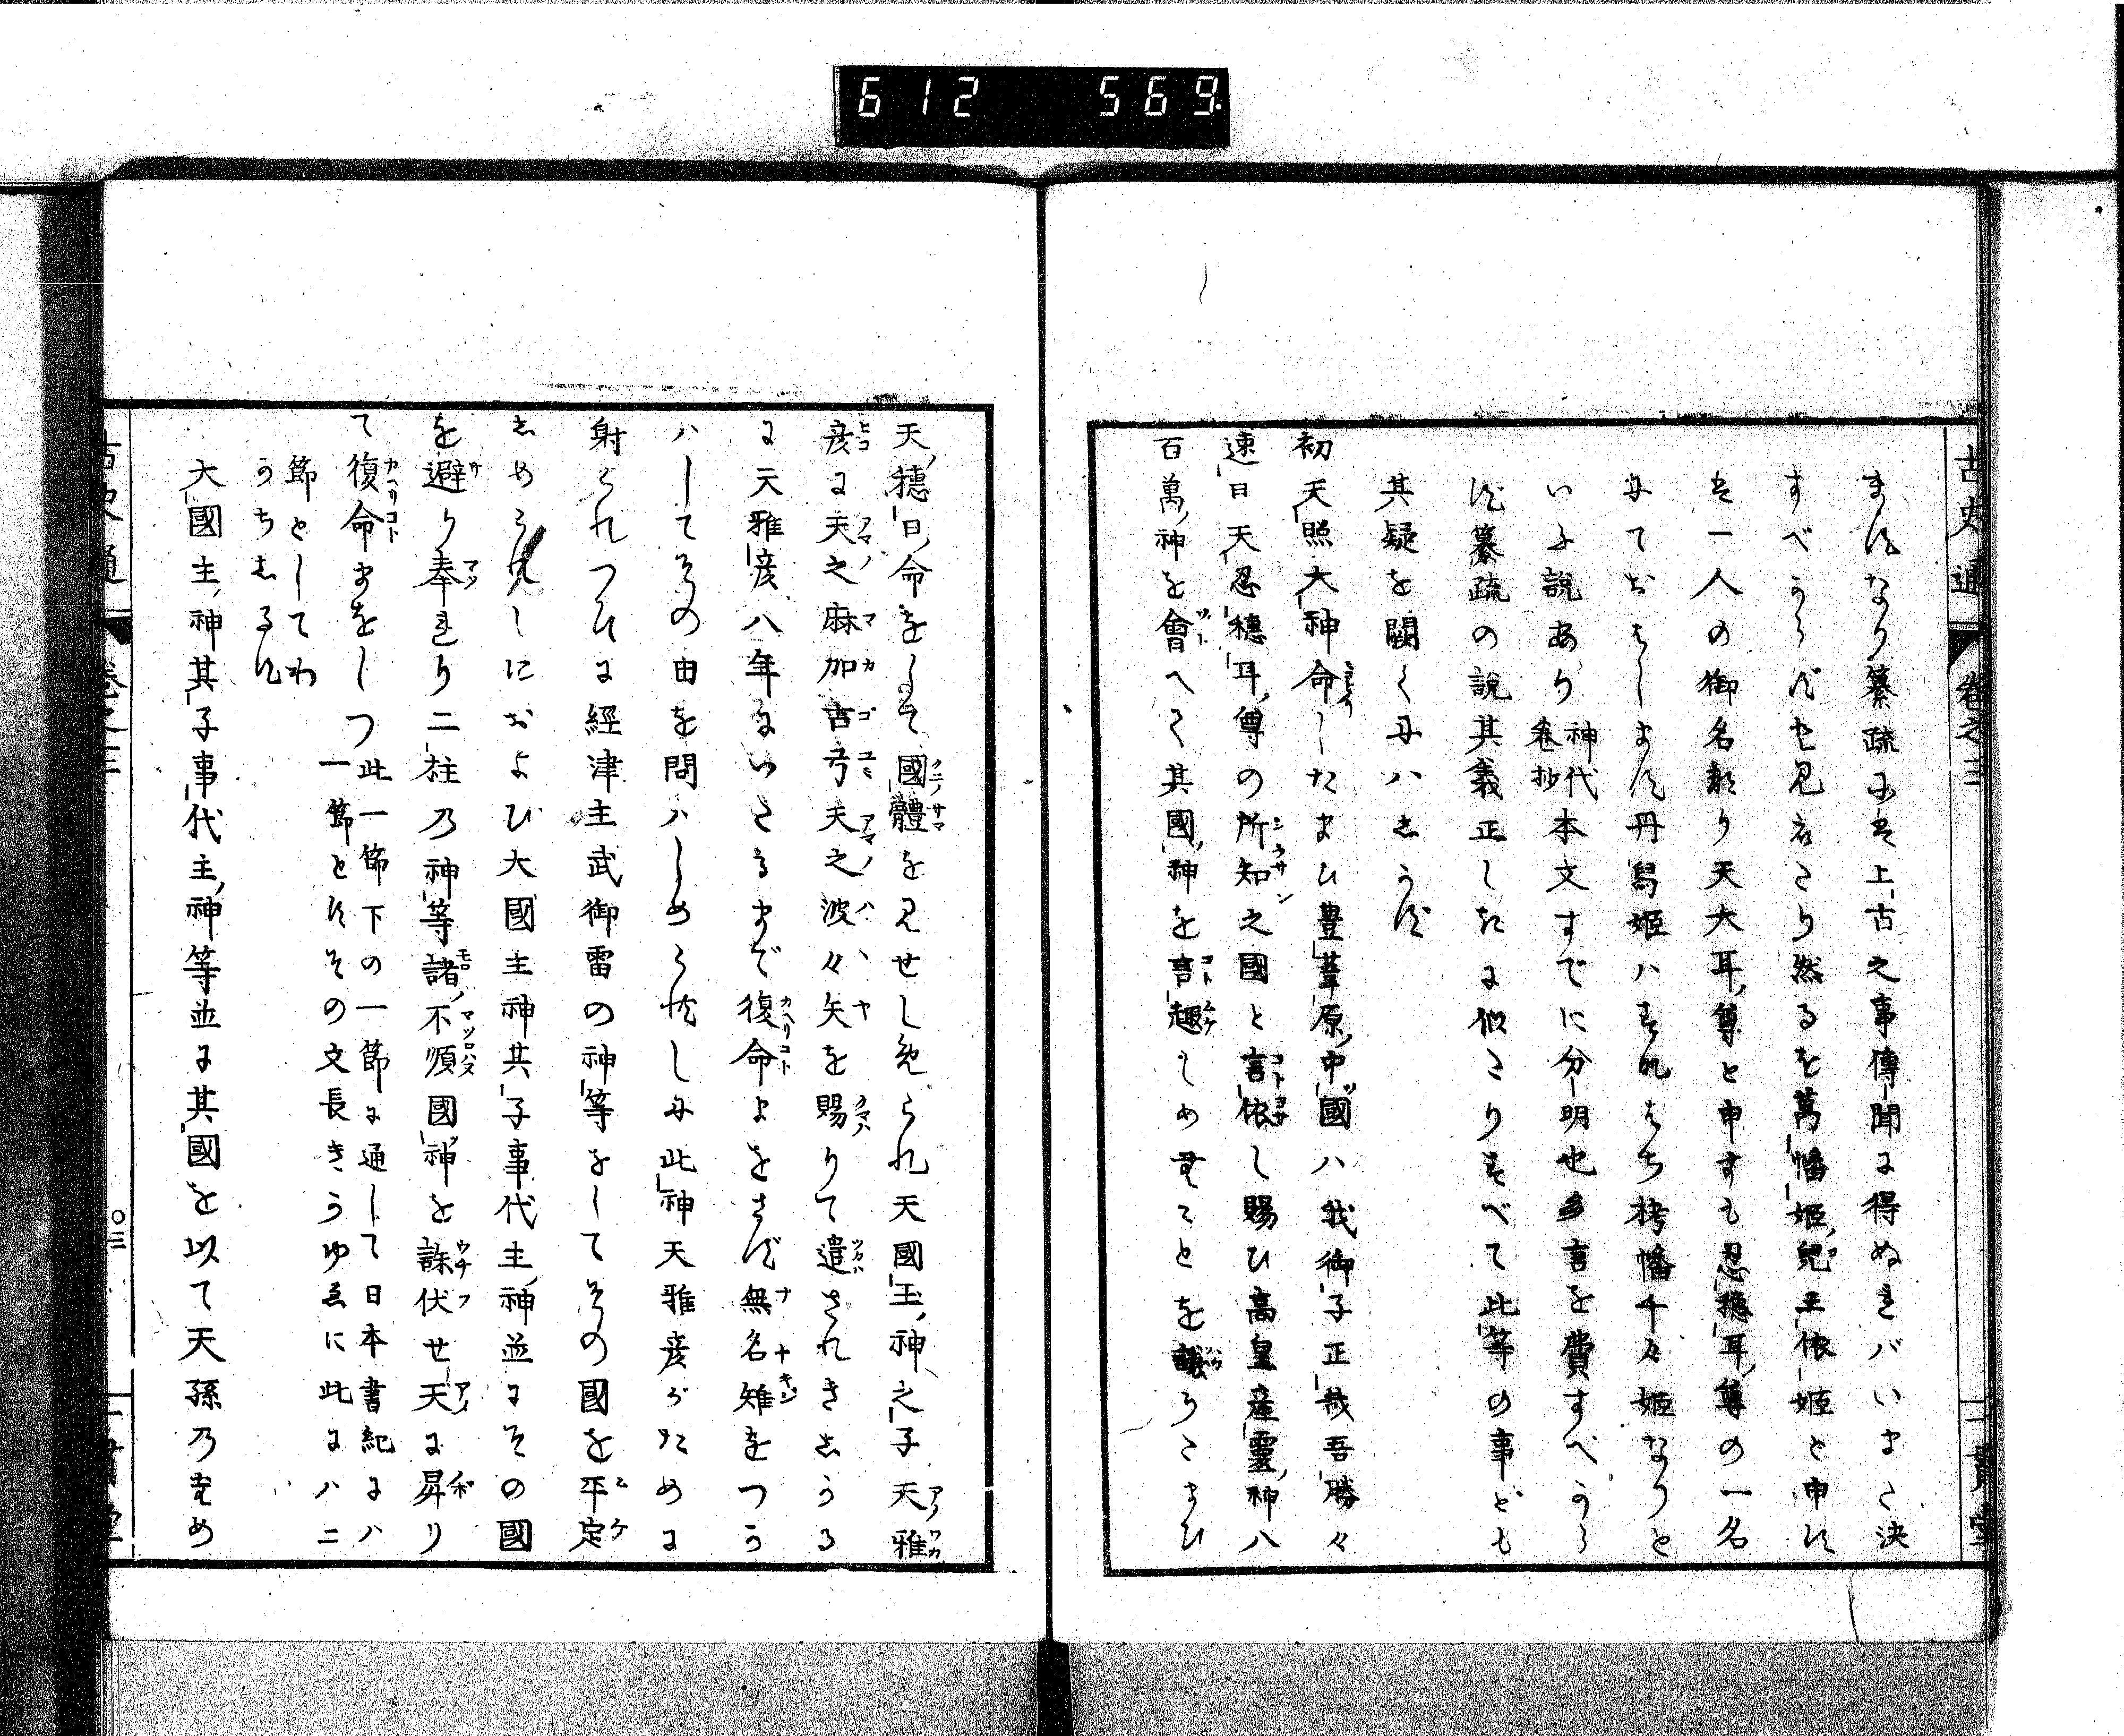 612 569
古史通 卷之三
まほなり纂疏には上古之事傳聞に得ぬれバいまた決
すべからずと見えたり然るを萬幡姫兒玉依姫と申は
は一人の御名なり天大耳尊と申すも忍穂耳尊の一名
にておはします丹舄姫ハすなはち栲幡千々姫なりと
いふ説あり
神代
卷抄
本文すでに分明也多言を費すべから
ず纂疏の說其義正しきに似たりすべて此等の事ども
其疑を闕くにハしかず
初天照大神命したまひ豊葦原中國ハ我御子正哉吾勝々
速日天忍穗耳尊の所知之國と言依し賜ひ高皇産靈神八
百萬神を會へて其國神を言趣しめむことを議りたまひ
天穗日命をして國體を見せしめられ天國玉神之子天雅
彦に天之麻加古弓天之波々矢を賜りて遣されきしかる
に天雅彦八年にいたるまで復命まをさず無名雉をつか
ハしてその由を問ハしめられしに此神天雅彦がために
射られつひに經津主武御雷の神等をしてその國を平定
しめられしにおよび大國主神其子事代主神並にその國
を避り奉れり二柱乃神等諸不順國神を誅伏せ天に昇り
て復命まをしつ
此一節下の一節に通して日本書紀にハ
一節とすその文長きうゆゑに此にハ二
節としてわ
かちしるす
大國主神其子事代主神等並に其國を以て天孫乃ため
古史通 卷之三 〇三